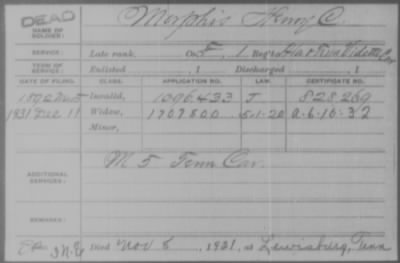 DEAD
NAME OF SOLDIER: Morphis Henry C.
SERVICE: Late rank, Co. F, 1 Reg't Vidette Cav
TERM OF SERVICE: Enlisted , 1 Discharged , 1
DATE OF FILING. CLASS. APPLICATION NO. LAW. CERTIFICATE NO.
Invalid, 1096.433 J 828269
1931 Dec 11 Widow, 1707800 5-1-20 a-6-10-32
Minor,
ADDITIONAL SERVICES: M 5 Tenn Cav.
REMARKS:
Died Nov 5, 1931, at Lewisburg, Tenn